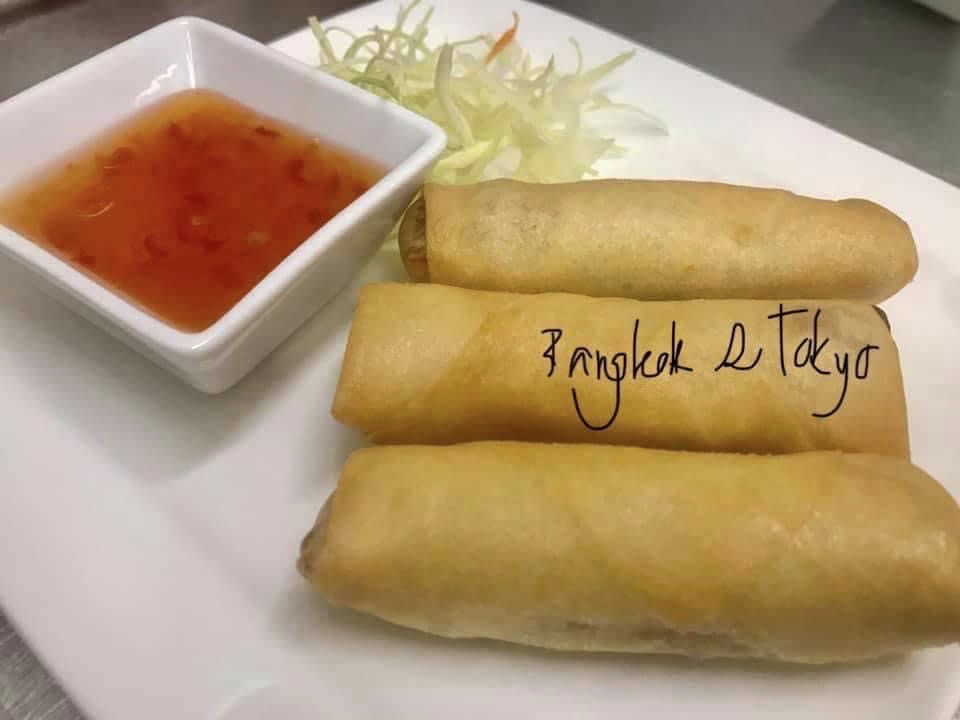 Bangkok 2 Tokyo